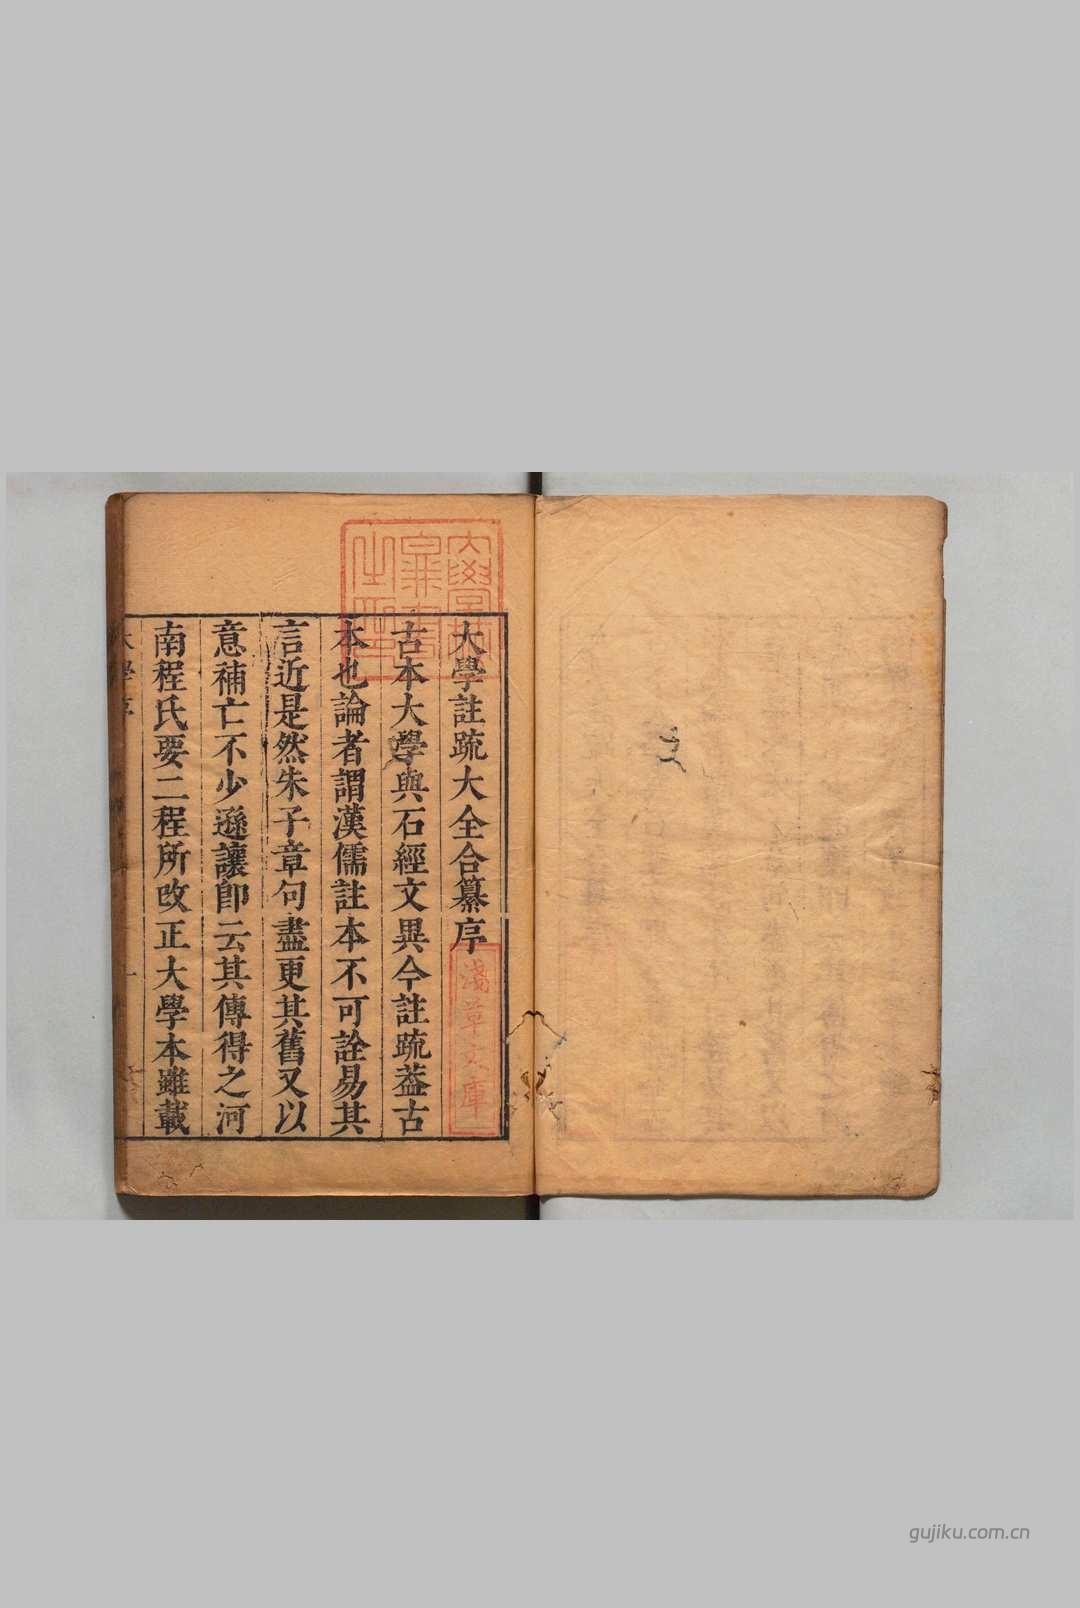 大學註疏大全合纂序
古本大學與石經文異今註疏葢古
本也論者謂漢儒註本不可詮易其
言近是然朱子章句盡更其舊又以
意補亡不少遜讓即云其傳得之河
南程氏要二程所改正大學本雖載
大學序
一
淺草文庫
gujiku.com.cn